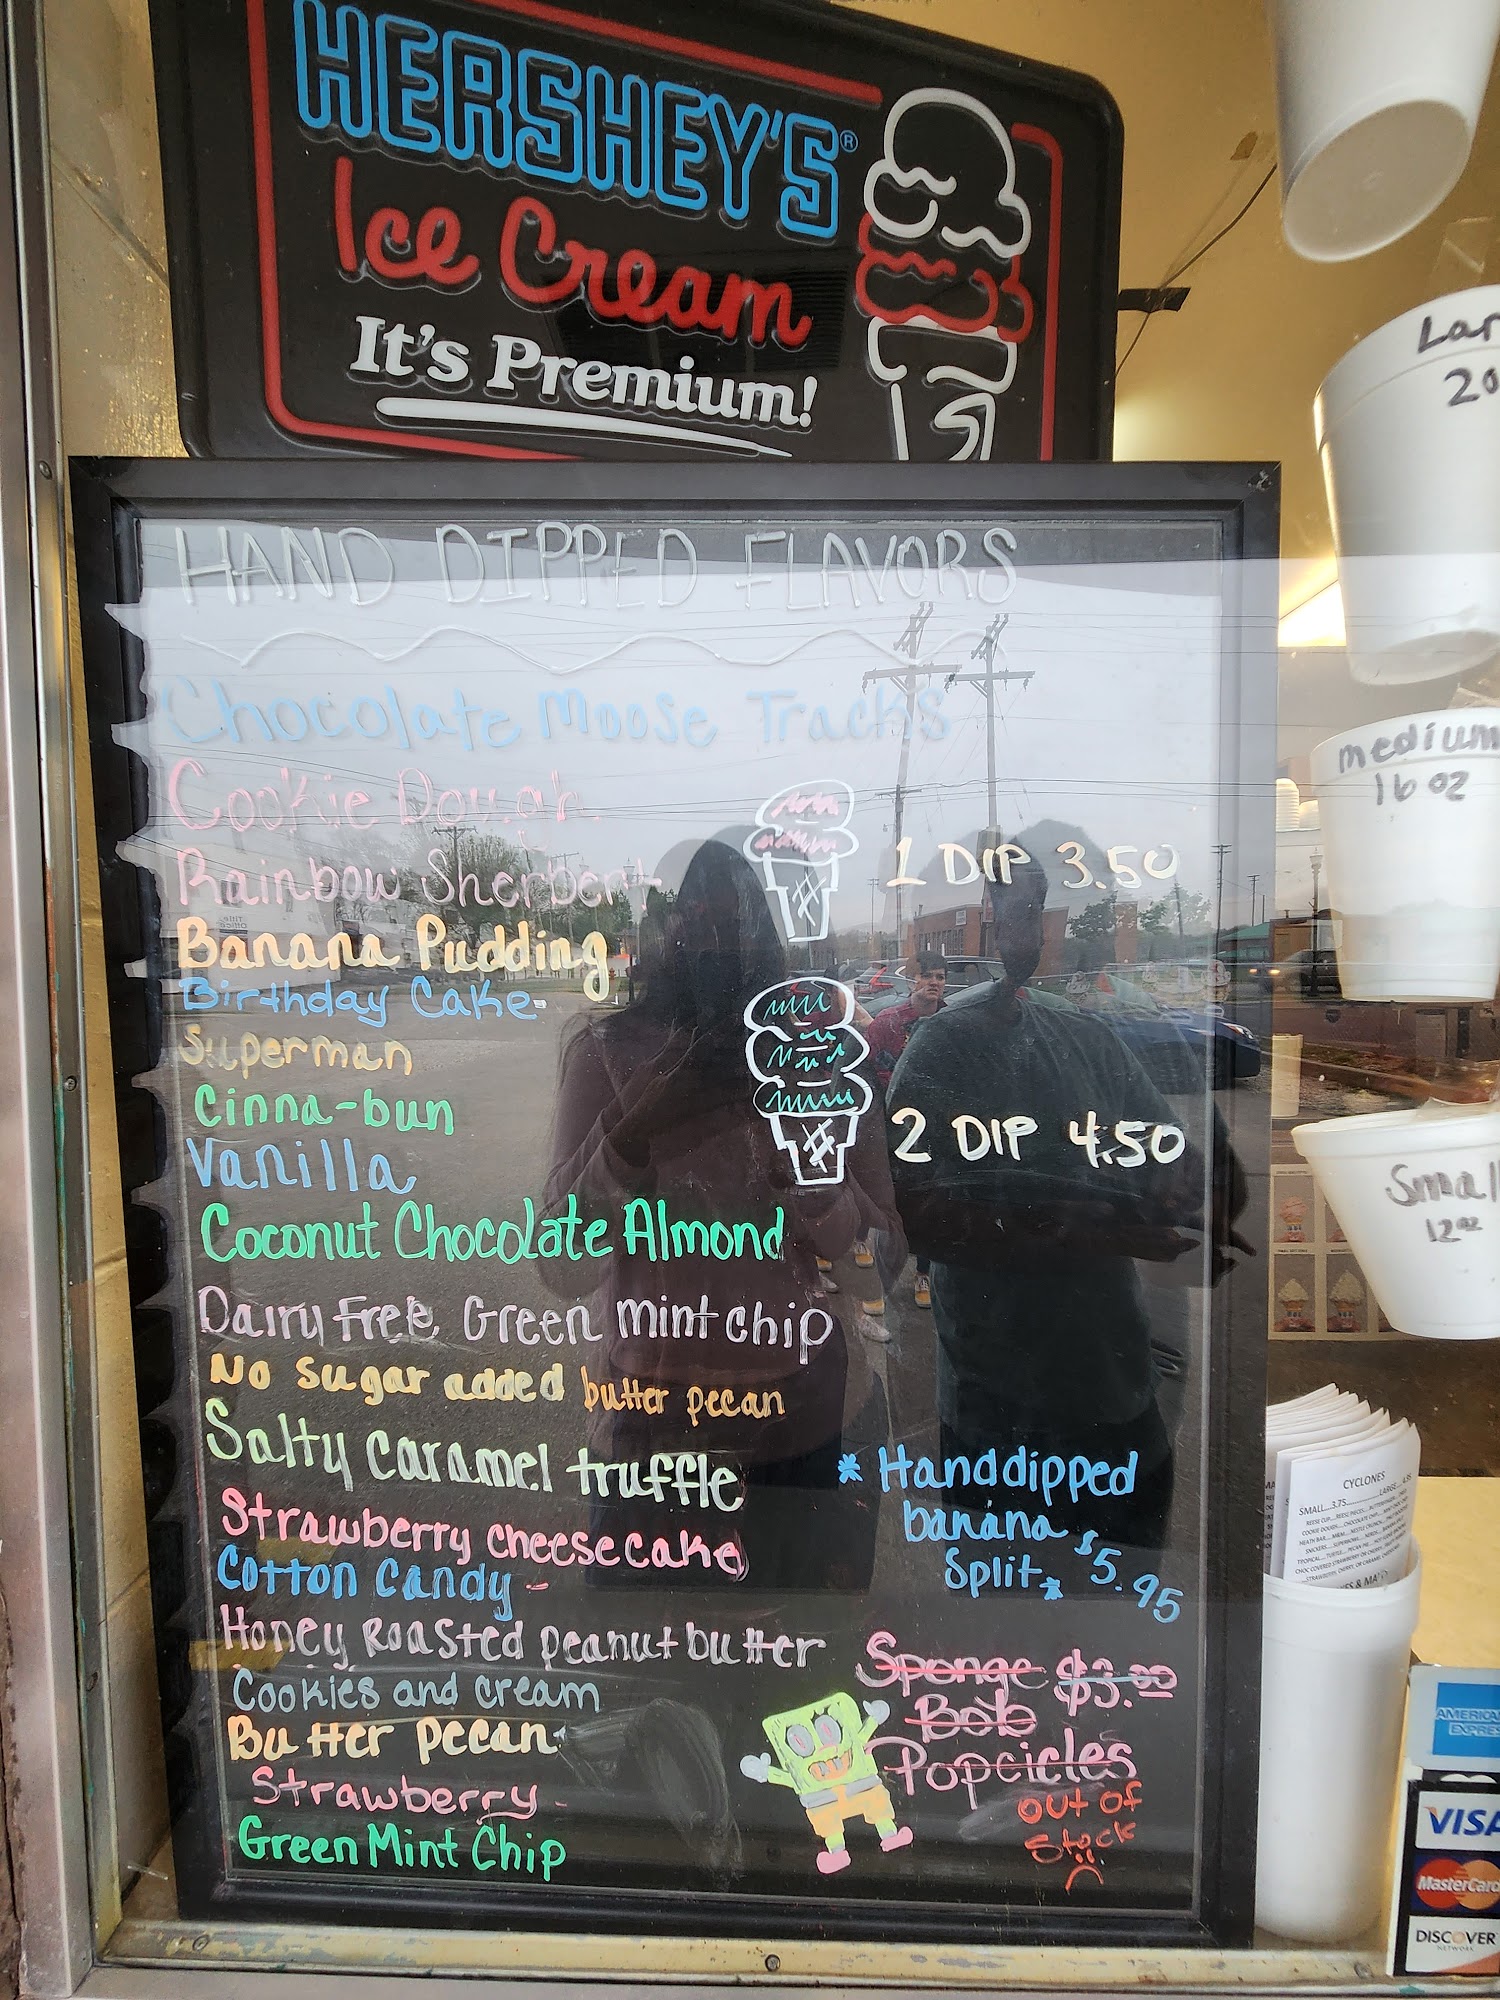 HERSHEY'S®
Ice Cream
It's Premium!
HAND DIPPED FLAVORS
Chocolate Moose Tracks
Cookie Dough
Rainbow Sherbert
Banana Pudding
Birthday Cake
Superman
Cinna-bun
Vanilla
Coconut Chocolate Almond
Dairy Free Green Mint Chip
No Sugar added butter pecan
Salty Caramel truffle
Strawberry Cheesecake
Cotton Candy -
Honey Roasted peanut butter
Cookies and cream
Butter pecan
Strawberry -
Green Mint Chip
1 DIP 3.50
2 DIP 4.50
* Handdipped
banana
Split * $5.95
Sponge $3.00
Bob
Popcicles
out of
Stock
Lar
20
medium
16 oz
Small
12 oz
CYCLONES
SMALL...3.75
LARGE
AMERICA
EXPRES
VISA
MasterCard
DISCOVER
NETWORK